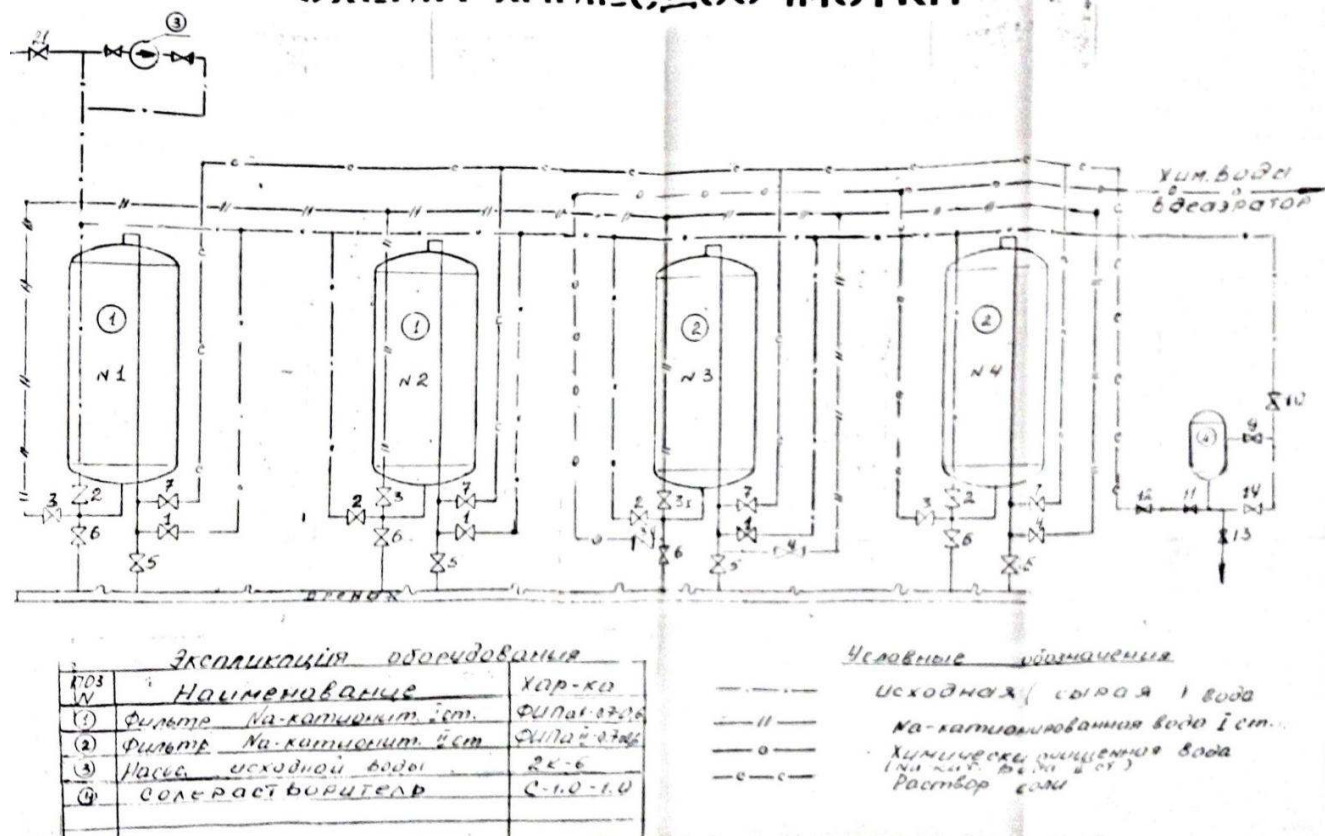 21
3
Хим. вода
в деаэратор
1
1
2
2
N1
N2
N3
N4
10
9
3
2
7
2
3
7
2
7
3
2
7
12
11
14
6
1
6
1
6
1
4
6
4
13
5
5
5
5
дренаж
Экспликация оборудования
ПОЗ N
Наименование
Хар-ка
1
Фильтр Na-катионит. I ст.
2
Фильтр Na-катионит. II ст
3
Насос исходной воды
2к-6
4
Солерастворитель
С-1.0-1.0
Условные обозначения
исходная (сырая) вода
Na-катионированная вода I ст.
Химически очищенная вода
Раствор соли